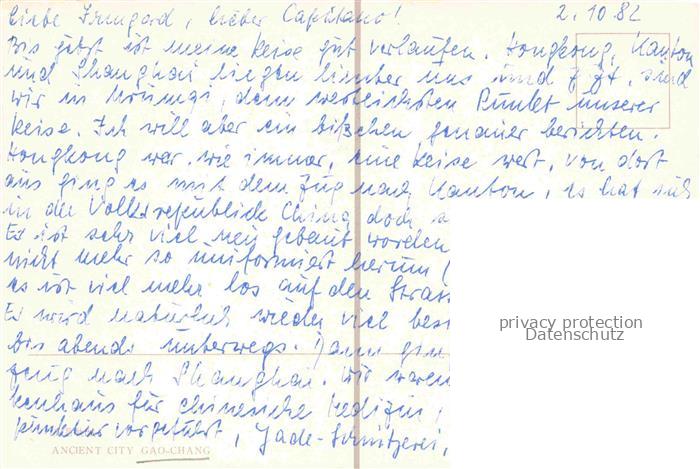 Liebe Irmgard, lieber Capitano! 2.10.82
Bis jetzt ist meine Reise gut verlaufen. Hongkong, Kanton
und Shanghai liegen hinter uns und z.Zt. sind
wir in Urumqi, dem westlichsten Punkt unserer
Reise. Ich will aber ein bißchen genauer berichten.
Hongkong war, wie immer, eine Reise wert, von dort
aus ging es mit dem Zug nach Kanton, es hat sich
in der Volksrepublick China doch s
Es ist sehr viel neu gebaut worden
nicht mehr so uniformiert herum
es ist viel mehr los auf den Strass
Es wird natürlich wieder viel besi
bis abends unterwegs. Dann ging
zeug nach Shanghai. Wir waren
kenhaus für chinesische Medizin,
punktur vorgeführt, Jade-Schnitzerei,
ANCIENT CITY GAO-CHANG
privacy protection
Datenschutz